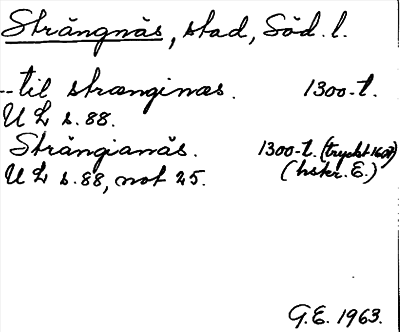 Strängnäs, stad, Söd. l.
--til strænginæs. 1300-t.
UL s. 88.
Strängianäs. 1300-t. (tryckt 1607)
UL s. 88, not 25. (hskr. E.)
G.E. 1963.